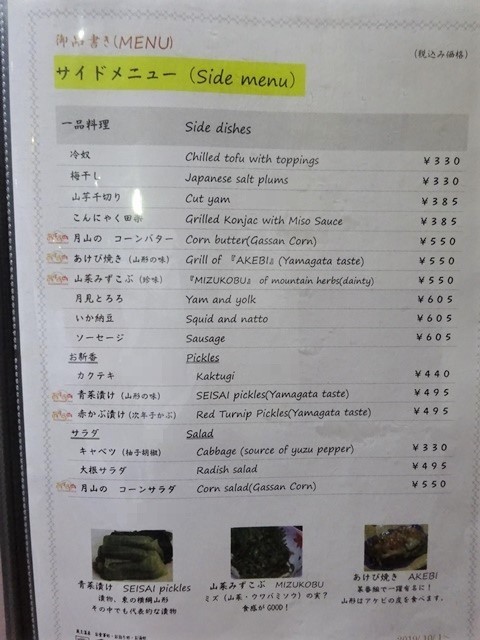 御品書き(MENU)
(税込み価格)
サイドメニュー (Side menu)
一品料理 Side dishes
冷奴 Chilled tofu with toppings ¥330
梅干し Japanese salt plums ¥330
山芋千切り Cut yam ¥385
こんにゃく田楽 Grilled Konjac with Miso Sauce ¥385
月山の コーンバター Corn butter(Gassan Corn) ¥550
あけび焼き (山形の味) Grill of 『AKEBI』(Yamagata taste) ¥550
山菜みずこぶ (珍味) 『MIZUKOBU』 of mountain herbs(dainty) ¥550
月見とろろ Yam and yolk ¥605
いか納豆 Squid and natto ¥605
ソーセージ Sausage ¥605
お新香 Pickles
カクテキ Kaktugi ¥440
青菜漬け (山形の味) SEISAI pickles(Yamagata taste) ¥495
赤かぶ漬け (次年子かぶ) Red Turnip Pickles(Yamagata taste) ¥495
サラダ Salad
キャベツ (柚子胡椒) Cabbage (source of yuzu pepper) ¥330
大根サラダ Radish salad ¥495
月山の コーンサラダ Corn salad(Gassan Corn) ¥550
青菜漬け SEISAI pickles
漬物、東の横綱山形
その中でも代表的な漬物
山菜みずこぶ MIZUKOBU
ミズ (山菜・ウワバミソウ) の実?
食感がGOOD!
あけび焼き AKEBI
某番組で一躍有名に!
山形はアケビの皮を食べます。